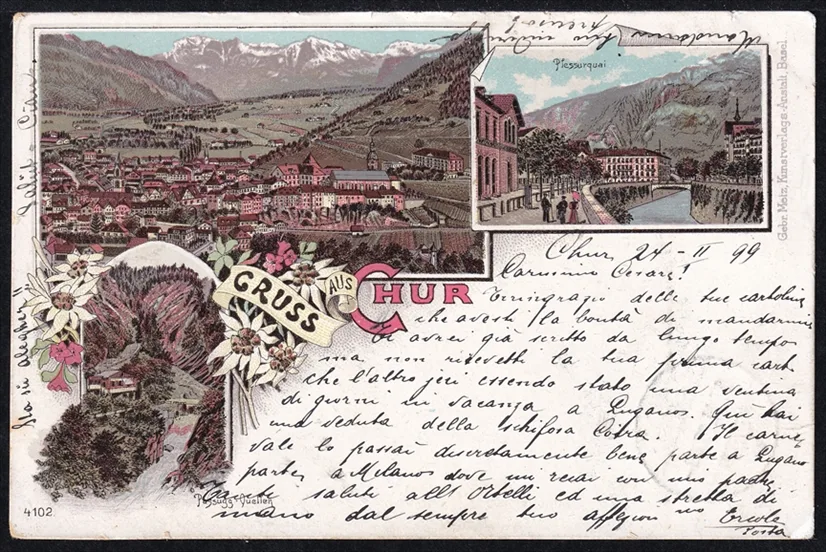 Plessurquai
Gebr. Metz, Kunstverlags-Anstalt, Basel.
GRUSS
AUS
CHUR
Passugg-Quellen
4102
Chur 24-II 99
Carissimo Cesare!
delle tue cartoline
che avesti la bontà di mandarmi
avrei già scritto da lungo tempo
ma non ricevetti la tua prima cart.
che l'altro jeri essendo stato una ventina
di giorni in vacanza a Lugano. Qui hai
una veduta della schifosa Coira. Il carne-
vale lo passai discretamente bene parte a Lugano
parte a Milano dove mi recai con mio padre
saluti all' Ortelli ed una stretta di
mano dal sempre tuo affezion mo Ercole